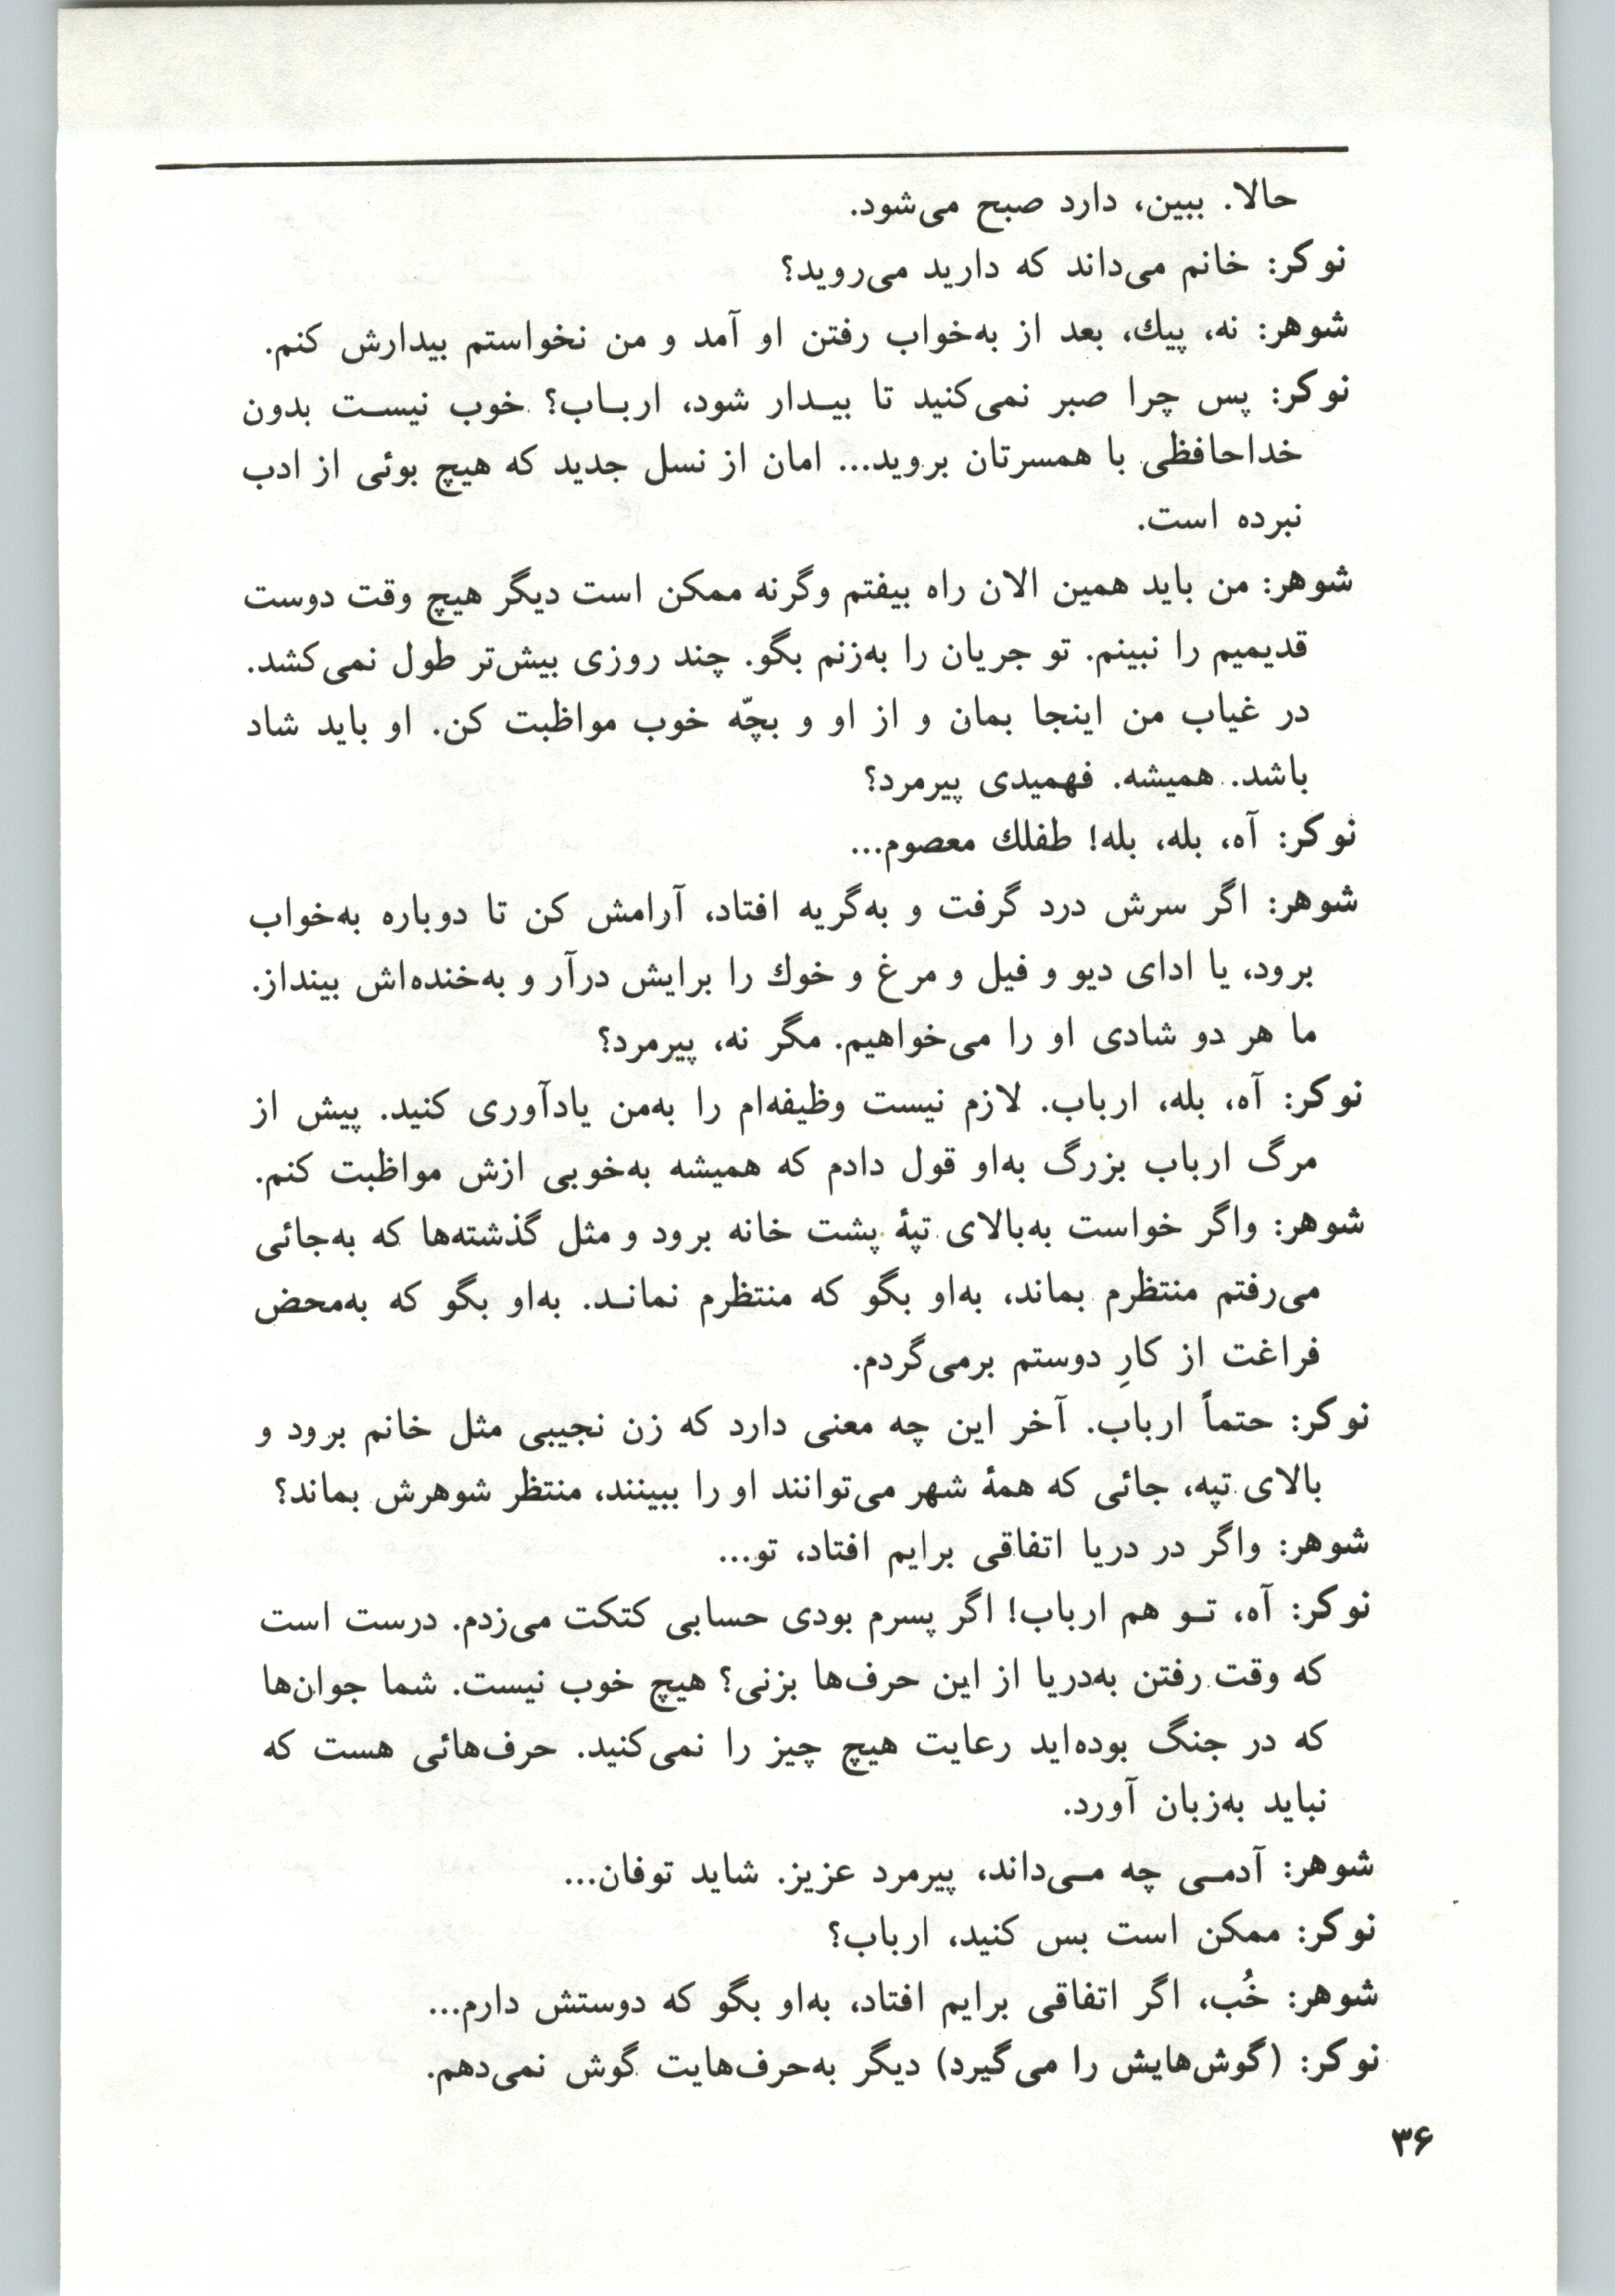 حالا. ببین، دارد صبح می‌شود.
نوکر: خانم می‌داند که دارید می‌روید؟
شوهر: نه، پیك، بعد از به‌خواب رفتن او آمد و من نخواستم بیدارش کنم.
نوکر: پس چرا صبر نمی‌کنید تا بیـدار شود، اربـاب؟ خوب نیسـت بدون
خداحافظی با همسرتان بروید... امان از نسل جدید که هیچ بوئی از ادب
نبرده است.
شوهر: من باید همین الان راه بیفتم وگرنه ممکن است دیگر هیچ وقت دوست
قدیمیم را نبینم. تو جریان را به‌زنم بگو. چند روزی بیش‌تر طول نمی‌کشد.
در غیاب من اینجا بمان و از او و بچّه خوب مواظبت کن. او باید شاد
باشد. همیشه. فهمیدی پیرمرد؟
نوکر: آه، بله، بله! طفلك معصوم...
شوهر: اگر سرش درد گرفت و به‌گریه افتاد، آرامش کن تا دوباره به‌خواب
برود، یا ادای دیو و فیل و مرغ و خوك را برایش درآر و به‌خنده‌اش بینداز.
ما هر دو شادی او را می‌خواهیم. مگر نه، پیرمرد؟
نوکر: آه، بله، ارباب. لازم نیست وظیفه‌ام را به‌من یادآوری کنید. پیش از
مرگ ارباب بزرگ به‌او قول دادم که همیشه به‌خوبی ازش مواظبت کنم.
شوهر: واگر خواست به‌بالای تپهٔ پشت خانه برود و مثل گذشته‌ها که به‌جائی
می‌رفتم منتظرم بماند، به‌او بگو که منتظرم نمانـد. به‌او بگو که به‌محض
فراغت از کارِ دوستم برمی‌گردم.
نوکر: حتماً ارباب. آخر این چه معنی دارد که زن نجیبی مثل خانم برود و
بالای تپه، جائی که همهٔ شهر می‌توانند او را ببینند، منتظر شوهرش بماند؟
شوهر: واگر در دریا اتفاقی برایم افتاد، تو...
نوکر: آه، تـو هم ارباب! اگر پسرم بودی حسابی کتکت می‌زدم. درست است
که وقت رفتن به‌دریا از این حرف‌ها بزنی؟ هیچ خوب نیست. شما جوان‌ها
که در جنگ بوده‌اید رعایت هیچ چیز را نمی‌کنید. حرف‌هائی هست که
نباید به‌زبان آورد.
شوهر: آدمـی چه مـی‌داند، پیرمرد عزیز. شاید توفان...
نوکر: ممکن است بس کنید، ارباب؟
شوهر: خُب، اگر اتفاقی برایم افتاد، به‌او بگو که دوستش دارم...
نوکر: (گوش‌هایش را می‌گیرد) دیگر به‌حرف‌هایت گوش نمی‌دهم.
۳۶